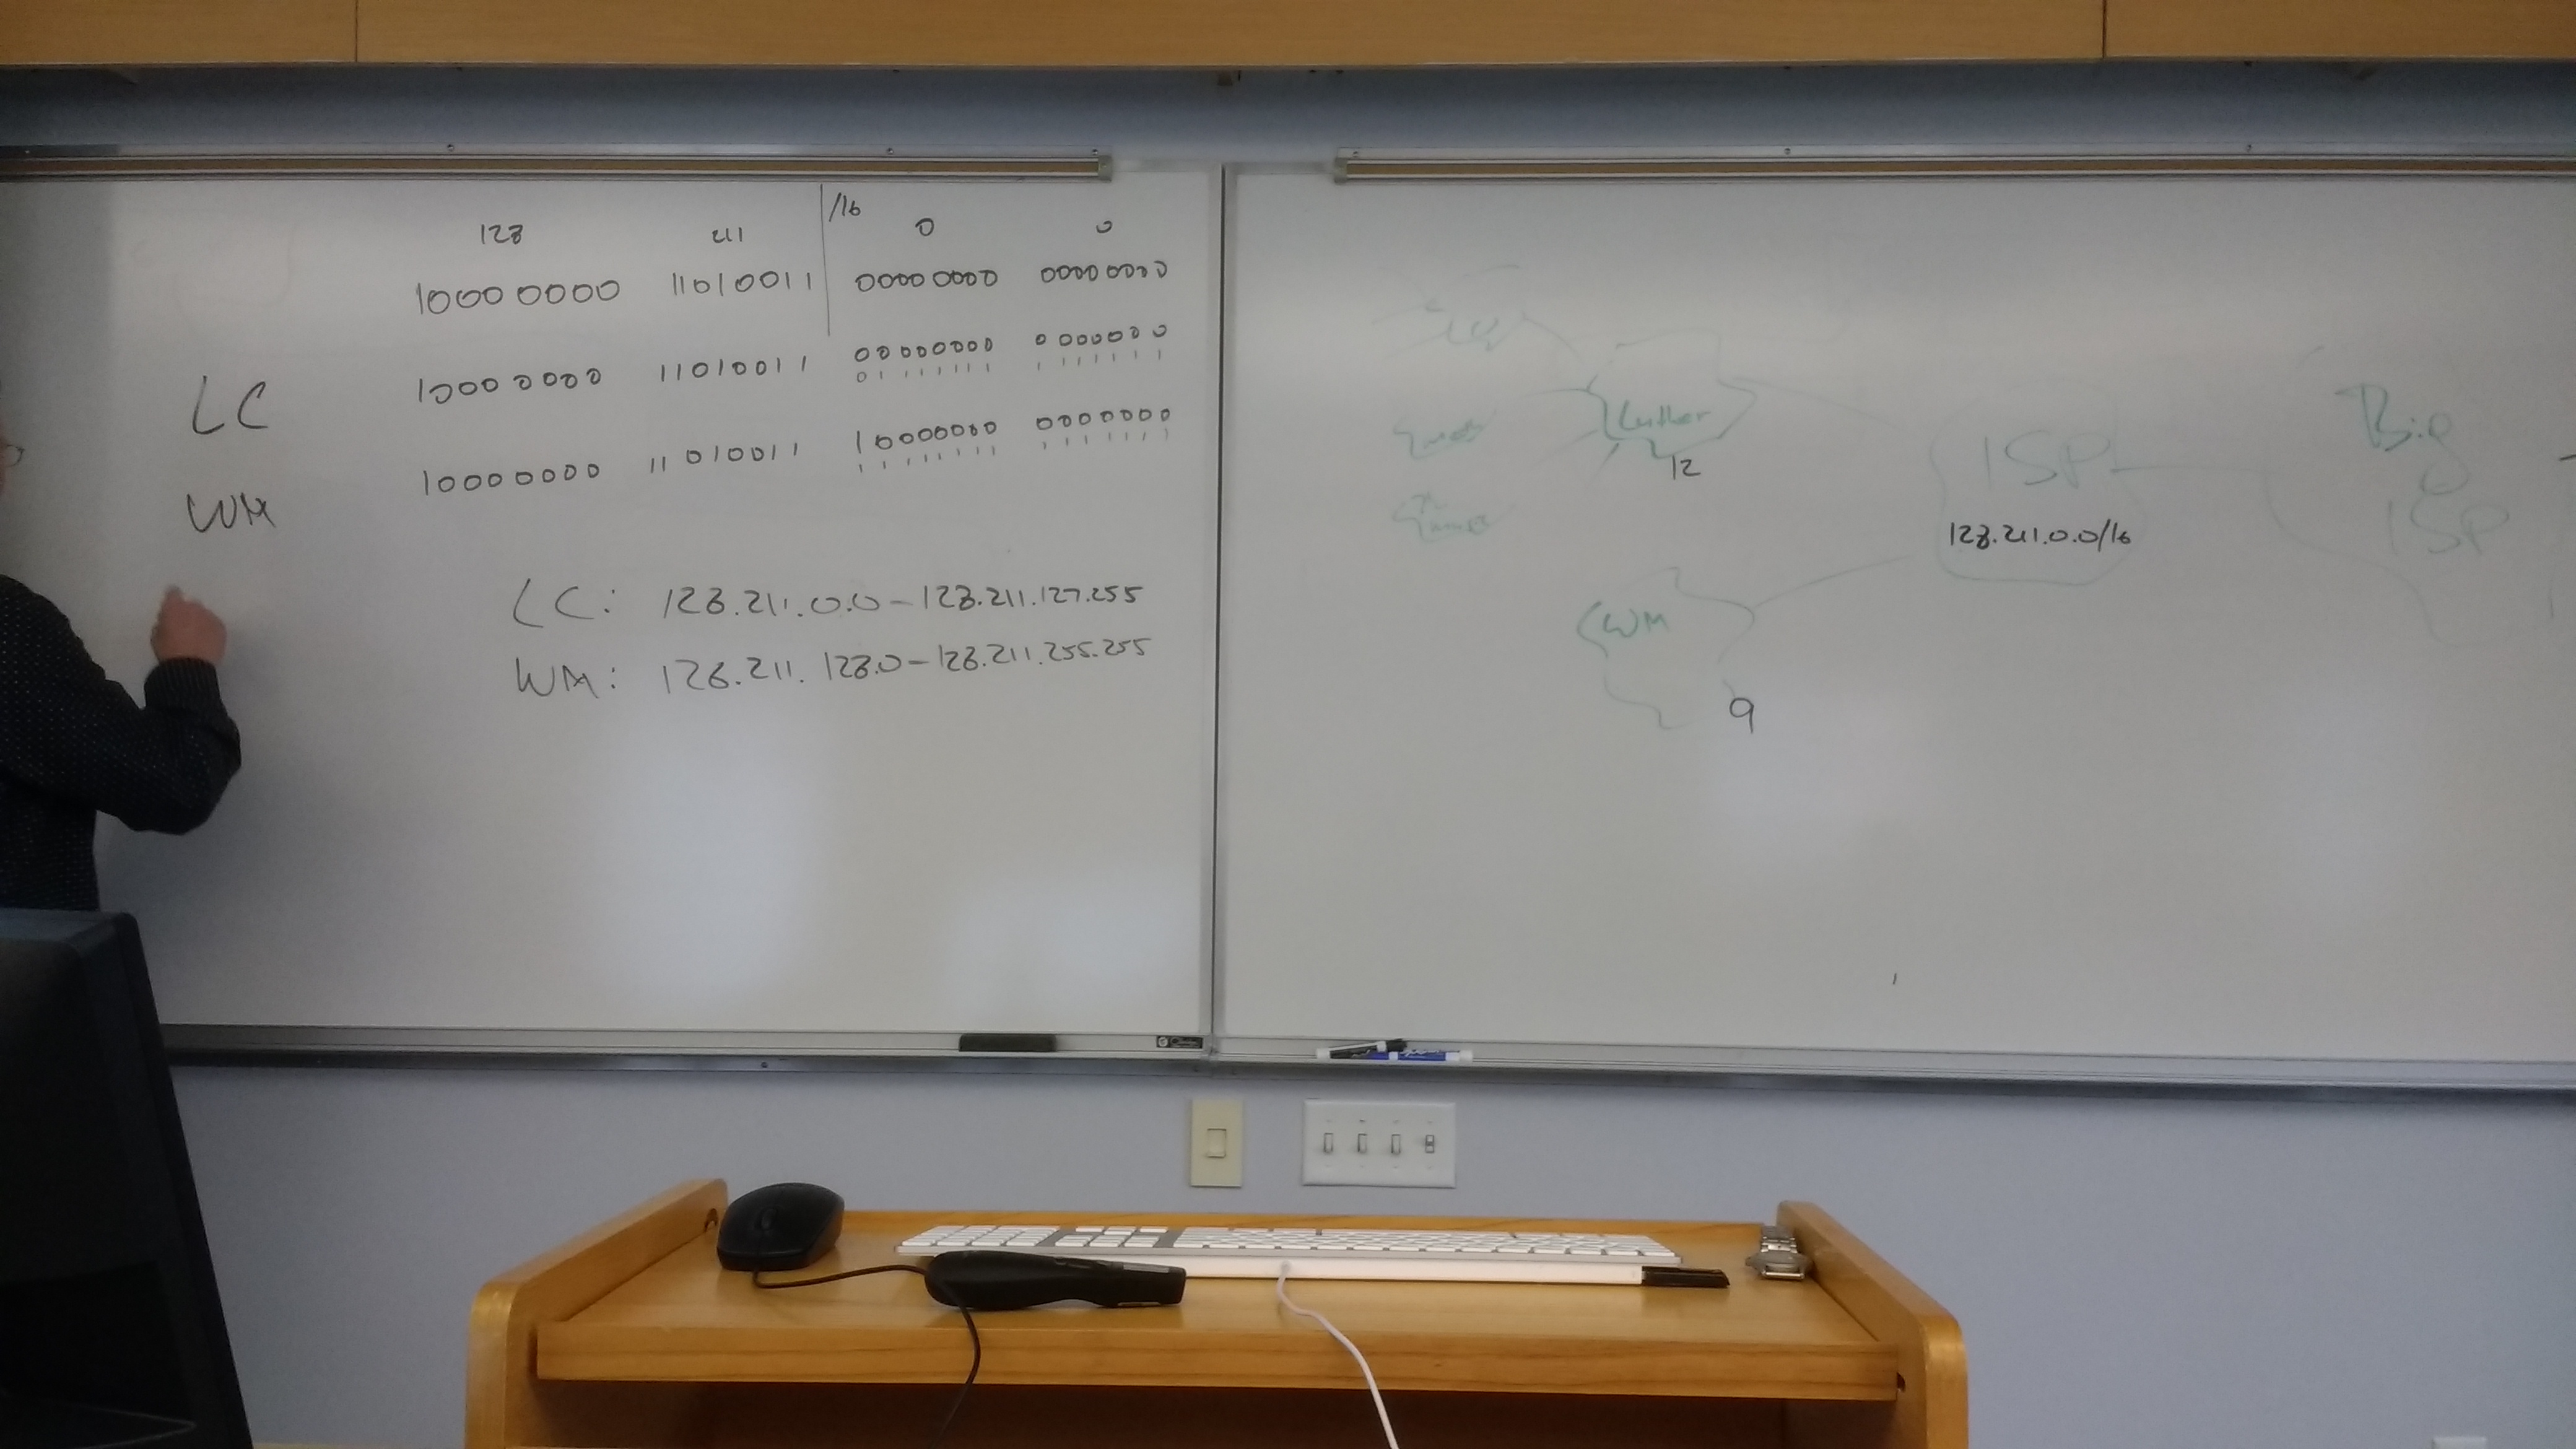 /16
128 211 0 0
10000000 11010011 00000000 00000000
LC 10000000 11010011 00000000 0000000
01111111 1111111
WM 10000000 11010011 10000000 0000000
11111111 1111111
LC: 128.211.0.0-128.211.127.255
WM: 128.211.128.0-128.211.255.255
Luther
12
ISP
128.211.0.0/16
Big
ISP
WM
9